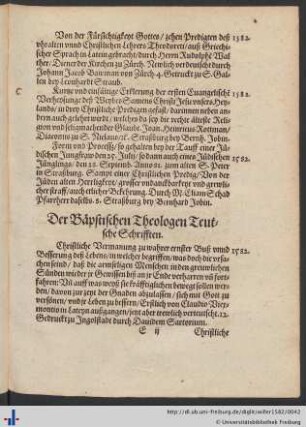 Von der Fürsichtigkeyt Gottes / zehen Predigten deß 1582.
vhralten vnnd Christlichen Lehrers Theodoreti / auß Griechi-
scher Sprach in Latein gebracht / durch Herrn Rudolphs Wal-
ther / Diener der Kirchen zu Zürch. Newlich verdeutscht durch
Johann Jacob Bawman von Zürch. 4. Getruckt zu S. Gal-
len bey Leonhardt Straub.
Kurtze vnd einfältige Erklerung der ersten Euangelische 1582.
Verheissunge deß Weybes Samens Christi Jesu vnsers Hey-
lands / in dreyen Christliche Predigen gefast. darinnen neben an-
dern auch gelehrt wirdt / welches da sey die rechte älteste Reli-
gion vnd seligmachender Glaube. Joan. Heinricus Rottman /
Diaconus zu S. Niclaus / 8. Straßburg bey Bernh. Jobin.
Form vnd Proceß / so gehalten bey der Tauff einer Jü-
dischen Jungfraw den 29. Julij / so dann auch eines Jüdischen 1582.
Jünglings / den 12. Septemb. Anno 81. zum alten S. Peter
in Straßburg. Sampt einer Christlichen Predig / Von der
Jüden alten Herrligkeyt / grosser vndanckbarkeyt vnd grewli-
cher straff / auch etlicher Bekehrung. Durch M. Eliam Schad
Pfarrherr daselbs. 8. Straßburg bey Bernhard Jobin.
Der Bäpstischen Theologen Teut-
sche Schrifften.
Christliche Vermanung zu wahrer ernster Buß vnnd 1582.
Besserung deß Lebens / in welcher begriffen / was doch die vrsa-
chen seind / daß die armseligen Menschen in den grewlichen
Sünden wider jr Gewissen biß an jr Ende verharren vñ fort-
fahren: Vñ auff was weyß sie kräfftiglichen bewegt sollen wer-
den / davon zur zeyt der Gnaden abzulassen / sich mit Gott zu
versönen / vnd jr Leben zu bessern: Erstlich von Claudio Viex-
montio in Latein außgangen / jetzt aber trewlich verteutscht. 12.
Gedruckt zu Ingolstadt durch Dauidem Sartorium.
E ij Christliche
http://dl.ub.uni-freiburg.de/diglit/willer1582/0042
© Universitätsbibliothek Freiburg